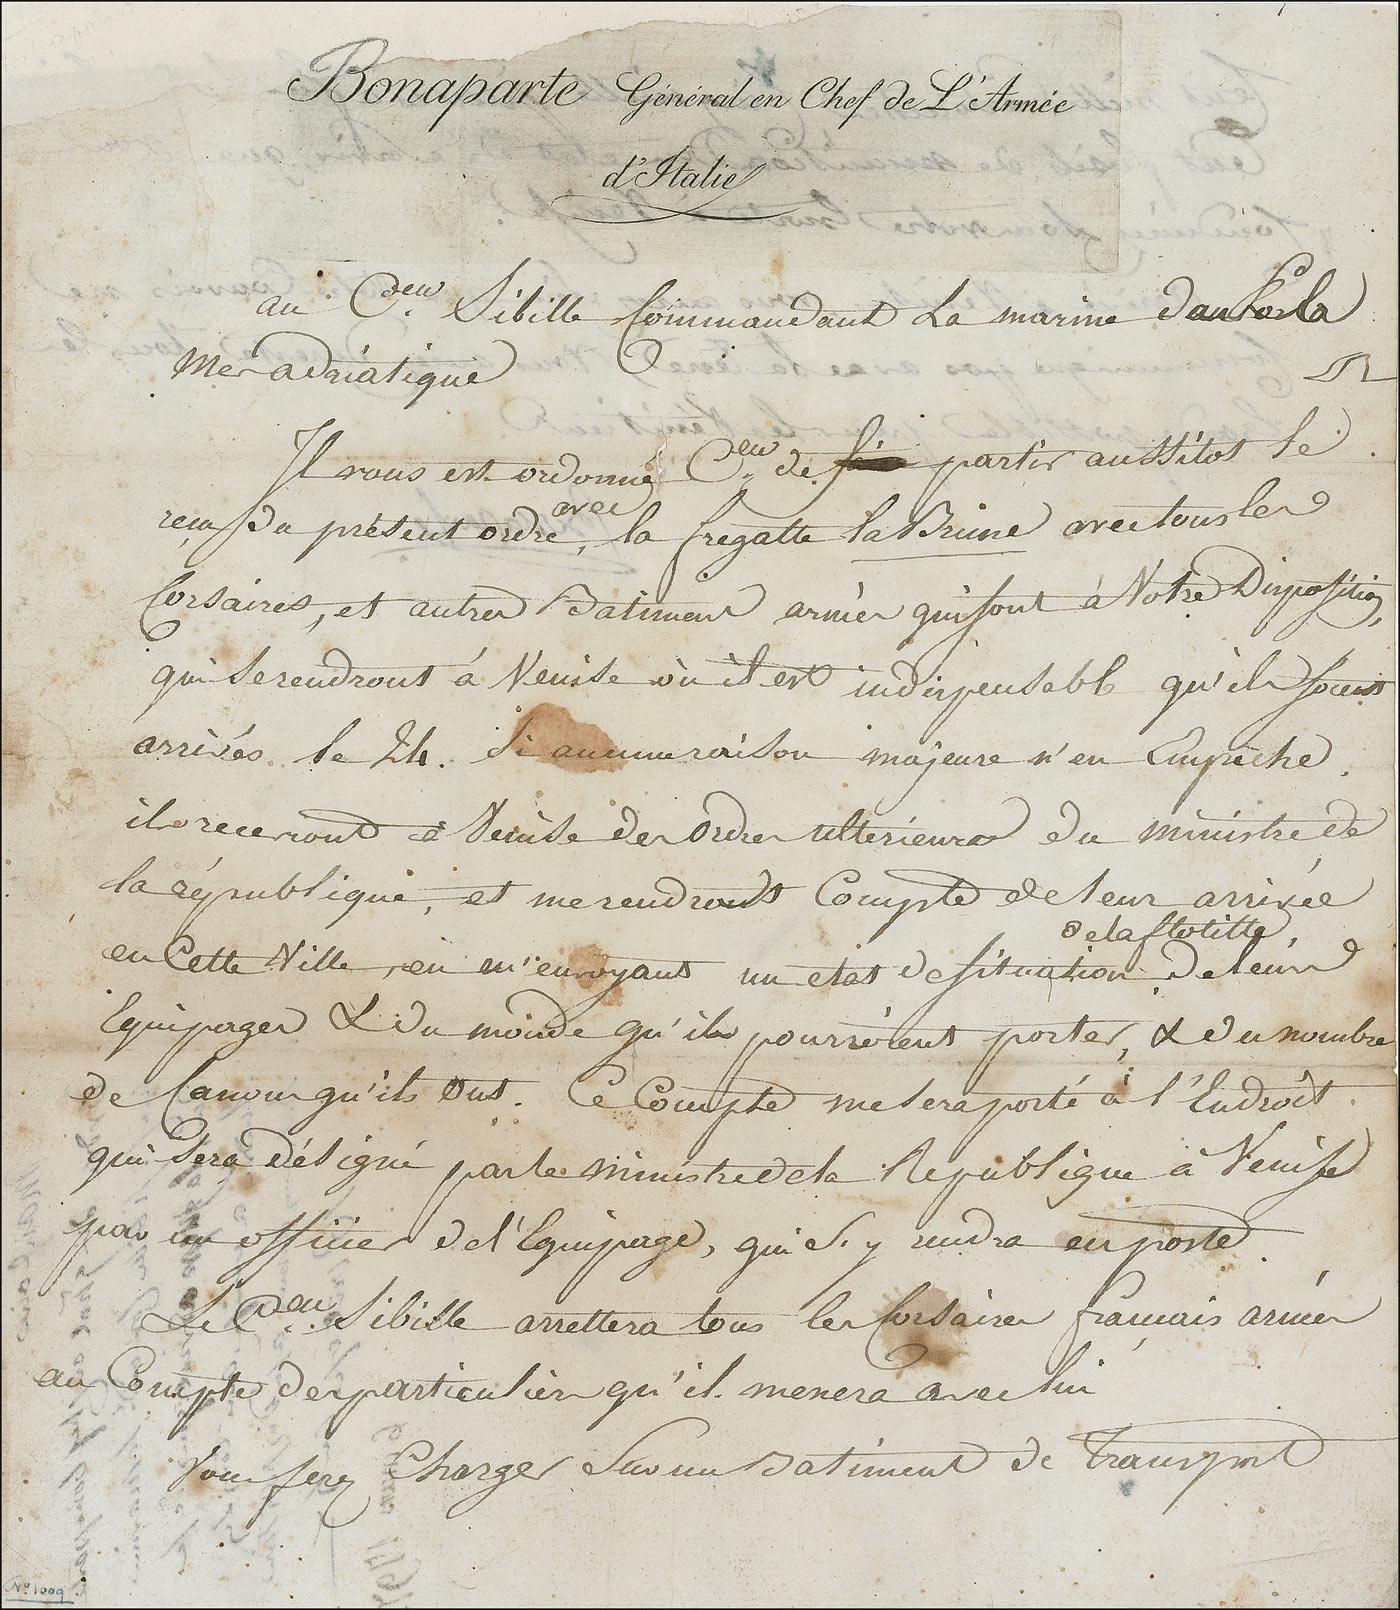 Bonaparte Général en Chef de L'Armée
d'Italie
au C.en Sibille Commandant La marine dans la
Mer adriatique
Il vous est ordonné C.en de partir aussitot le
reçu du présent ordre, avec la fregatte la Brune avec tous les
Corsaires, et autres Batiment armés qui sont à Votre Disposition,
qui se rendront à Venise où il est indispensable qu'ils soient
arrivés le 24. Si aucune raison majeure n'en Empêche.
ils recevront à Venise des ordres ulterieurs du ministre de
la république, et me rendront Compte de leur arrivée
en Cette Ville, en m'envoyant un etat de situation de la flotille, de leurs
Equipages & du monde qu'ils pourroient porter, & du nombre
de Canons qu'ils ont. Ce Compte me sera porté à l'Endroit
qui Sera désigné par le ministre de la Republique à Venise
par un officier de l'Equipage, qui S'y rendra en poste.
Le C.en Sibille arrettera tous les Corsaires français armés
au Compte des particuliers qu'il menera avec lui
Vous ferez Charger Sur un Batiment de Transport
N.o 1009